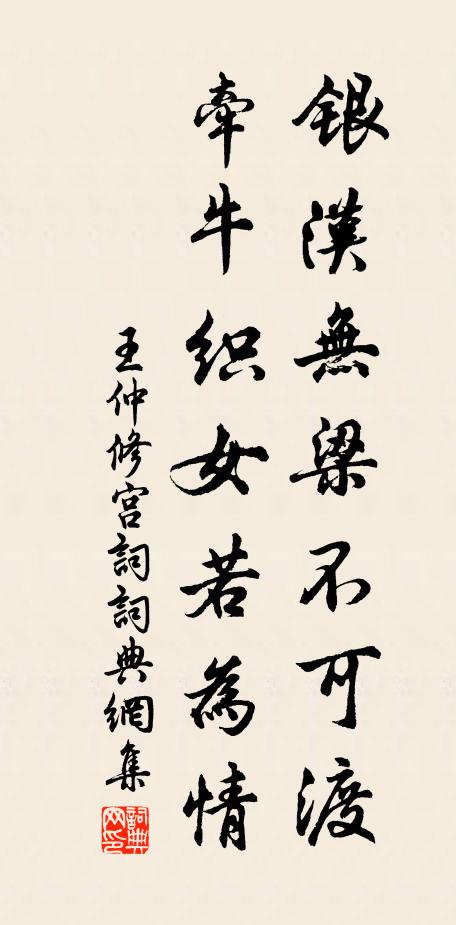 銀漢無梁不可渡
牽牛织女若為情
王仲修宫詞詞典網集
詞典网印